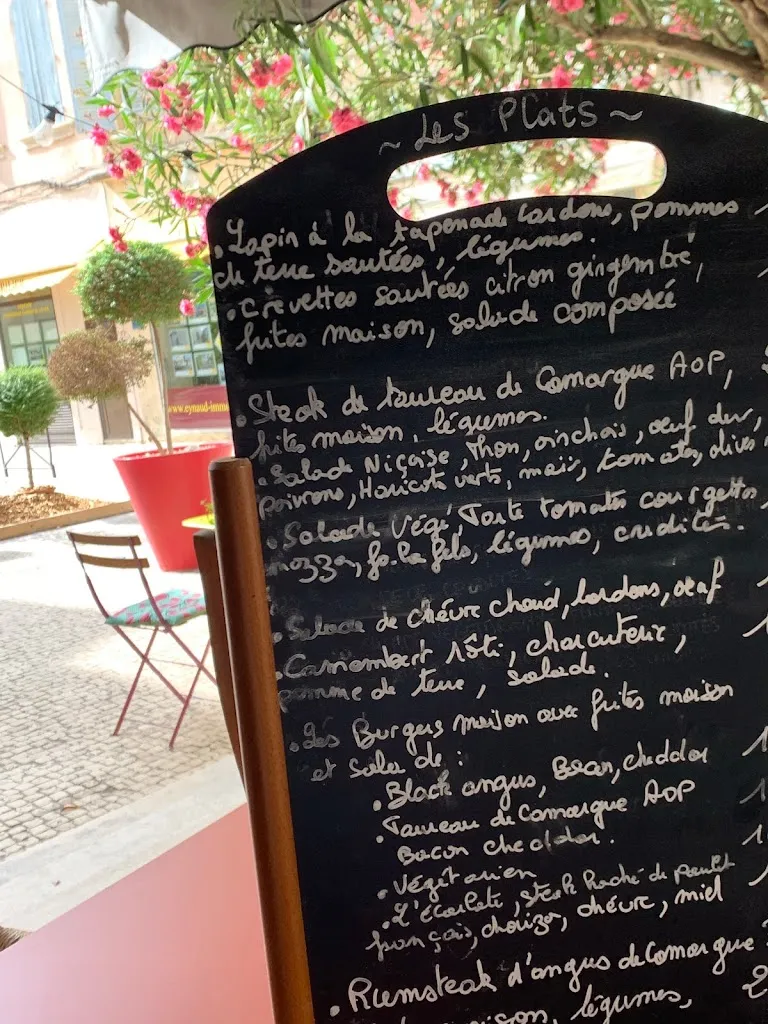 ~ Les Plats ~
• Lapin à la tapenade lardons, pommes
de terre sautées, légumes.
• Crevettes sautées citron gingembre,
frites maison, salade composée
• Steak de taureau de Camargue AOP,
frites maison, légumes.
• Salade Niçoise, Thon, anchois, œuf dur,
poivrons, Haricots verts, maïs, tomates, olives
• Salade Végé, Tarte tomates courgettes
mozza, falafels, légumes, crudités.
• Salade de chèvre chaud, lardons, œuf
• Camembert rôti, charcuterie,
pomme de terre, salade.
• Les Burgers maison avec frites maison
et salade :
• Black angus, Bacon, cheddar
• Taureau de Camargue AOP
Bacon cheddar.
• Végétarien
• L'écarlate, steak haché de poulet
français, chorizo, chèvre, miel
• Rumsteak d'angus de Camargue
maison, légumes,
www.eynaud-immo